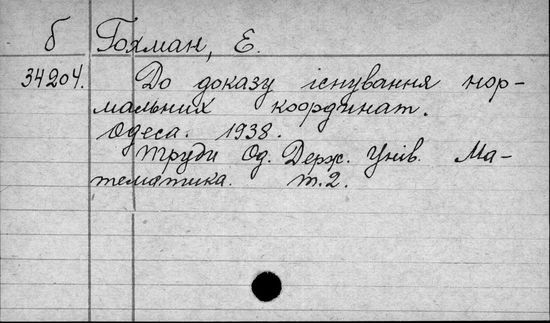 б Гохман, Е.
34204. До доказу існування нор-
мальних координат.
Одеса. 1938.
Труди Од. Держ. Унів. Ма-
тематика. т. 2.